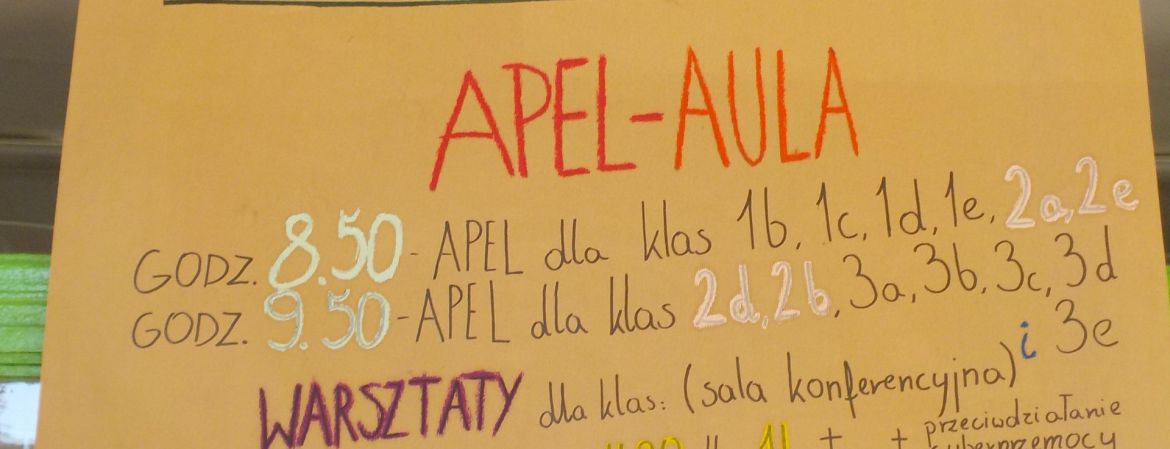 APEL-AULA
GODZ. 8.50 - APEL dla klas 1b, 1c, 1d, 1e, 2a, 2e
GODZ. 9.50 - APEL dla klas 2d, 2b, 3a, 3b, 3c, 3d
i 3e
WARSZTATY dla klas: (sala konferencyjna)
przeciwdziałanie
cyberprzemocy